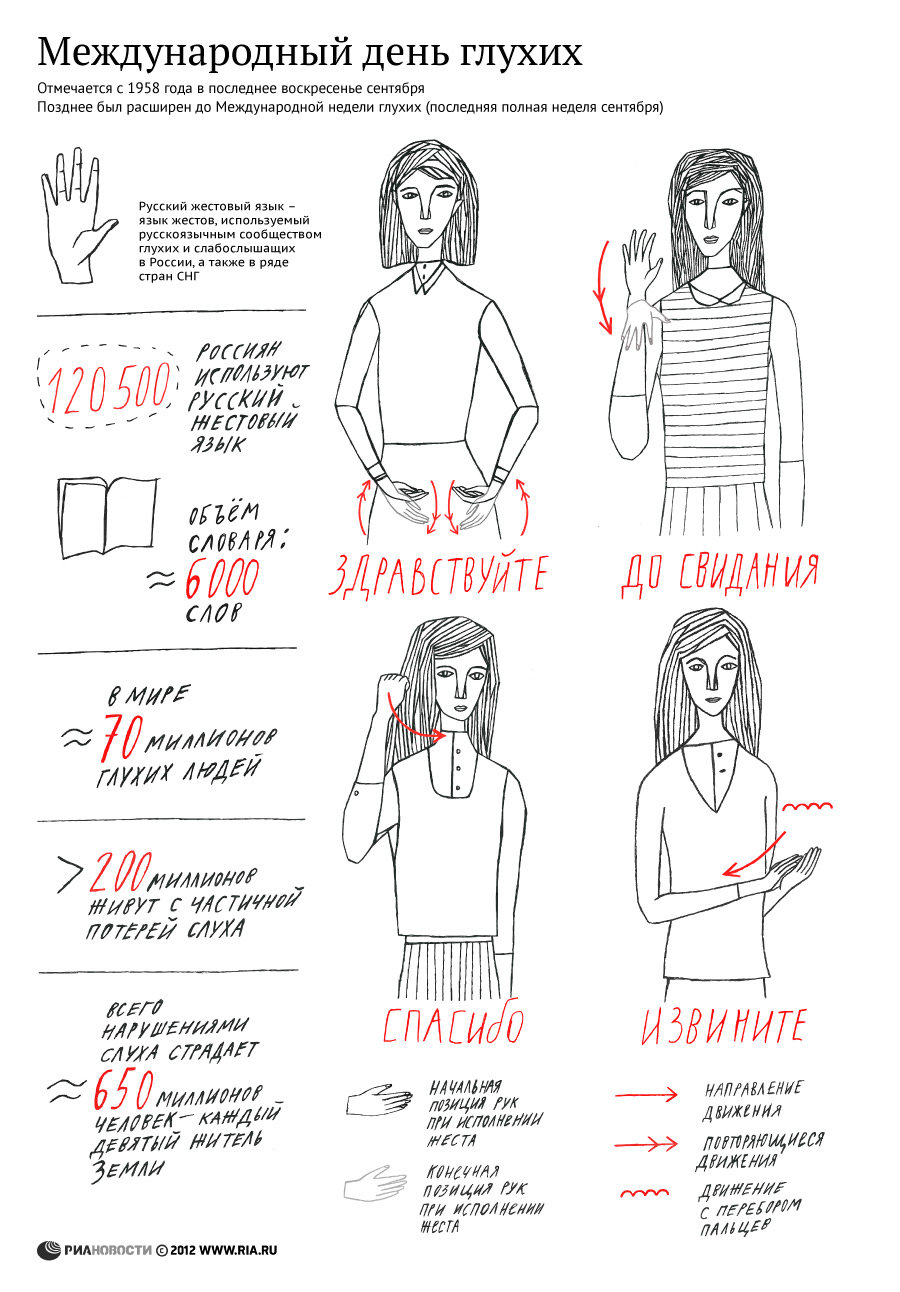 Международный день глухих
Отмечается с 1958 года в последнее воскресенье сентября
Позднее был расширен до Международной недели глухих (последняя полная неделя сентября)
Русский жестовый язык –
язык жестов, используемый
русскоязычным сообществом
глухих и слабослышащих
в России, а также в ряде
стран СНГ
120 500
РОССИЯН
ИСПОЛЬЗУЮТ
РУССКИЙ
ЖЕСТОВЫЙ
ЯЗЫК
ОБЪЁМ
СЛОВАРЯ:
≈ 6 000
СЛОВ
В МИРЕ
≈ 70 МИЛЛИОНОВ
ГЛУХИХ ЛЮДЕЙ
> 200 МИЛЛИОНОВ
ЖИВУТ С ЧАСТИЧНОЙ
ПОТЕРЕЙ СЛУХА
ВСЕГО
НАРУШЕНИЯМИ
СЛУХА СТРАДАЕТ
≈ 650 МИЛЛИОНОВ
ЧЕЛОВЕК – КАЖДЫЙ
ДЕВЯТЫЙ ЖИТЕЛЬ
ЗЕМЛИ
ЗДРАВСТВУЙТЕ
ДО СВИДАНИЯ
СПАСИБО
ИЗВИНИТЕ
НАЧАЛЬНАЯ
ПОЗИЦИЯ РУК
ПРИ ИСПОЛНЕНИИ
ЖЕСТА
КОНЕЧНАЯ
ПОЗИЦИЯ РУК
ПРИ ИСПОЛНЕНИИ
ЖЕСТА
НАПРАВЛЕНИЕ
ДВИЖЕНИЯ
ПОВТОРЯЮЩИЕСЯ
ДВИЖЕНИЯ
ДВИЖЕНИЕ
С ПЕРЕБОРОМ
ПАЛЬЦЕВ
РИАНОВОСТИ © 2012 WWW.RIA.RU